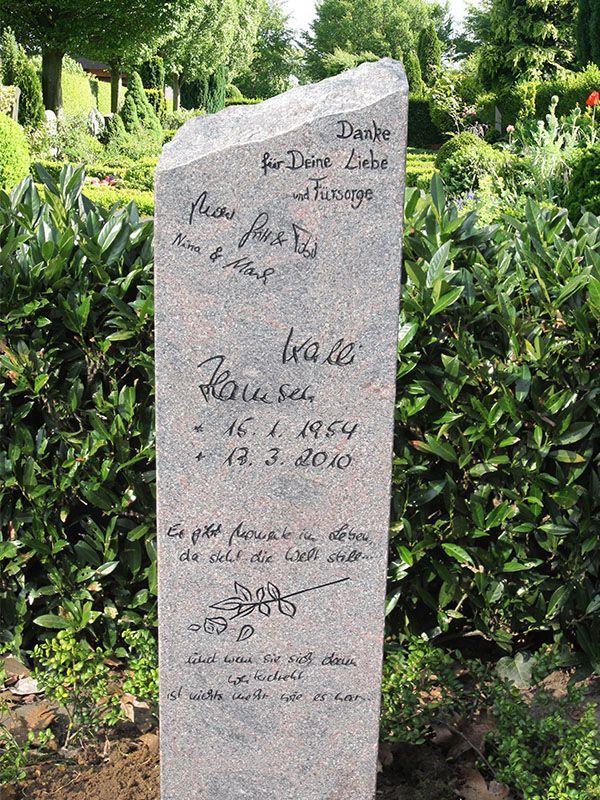 Danke
für Deine Liebe
und Fürsorge
Britt &
Nina & Mark
Walli
Hansen
* 15. 1. 1954
+ 13. 3. 2010
Es gibt Momente im Leben,
da steht die Welt still...
und wenn sie sich dann
weiterdreht
ist nichts mehr wie es war.